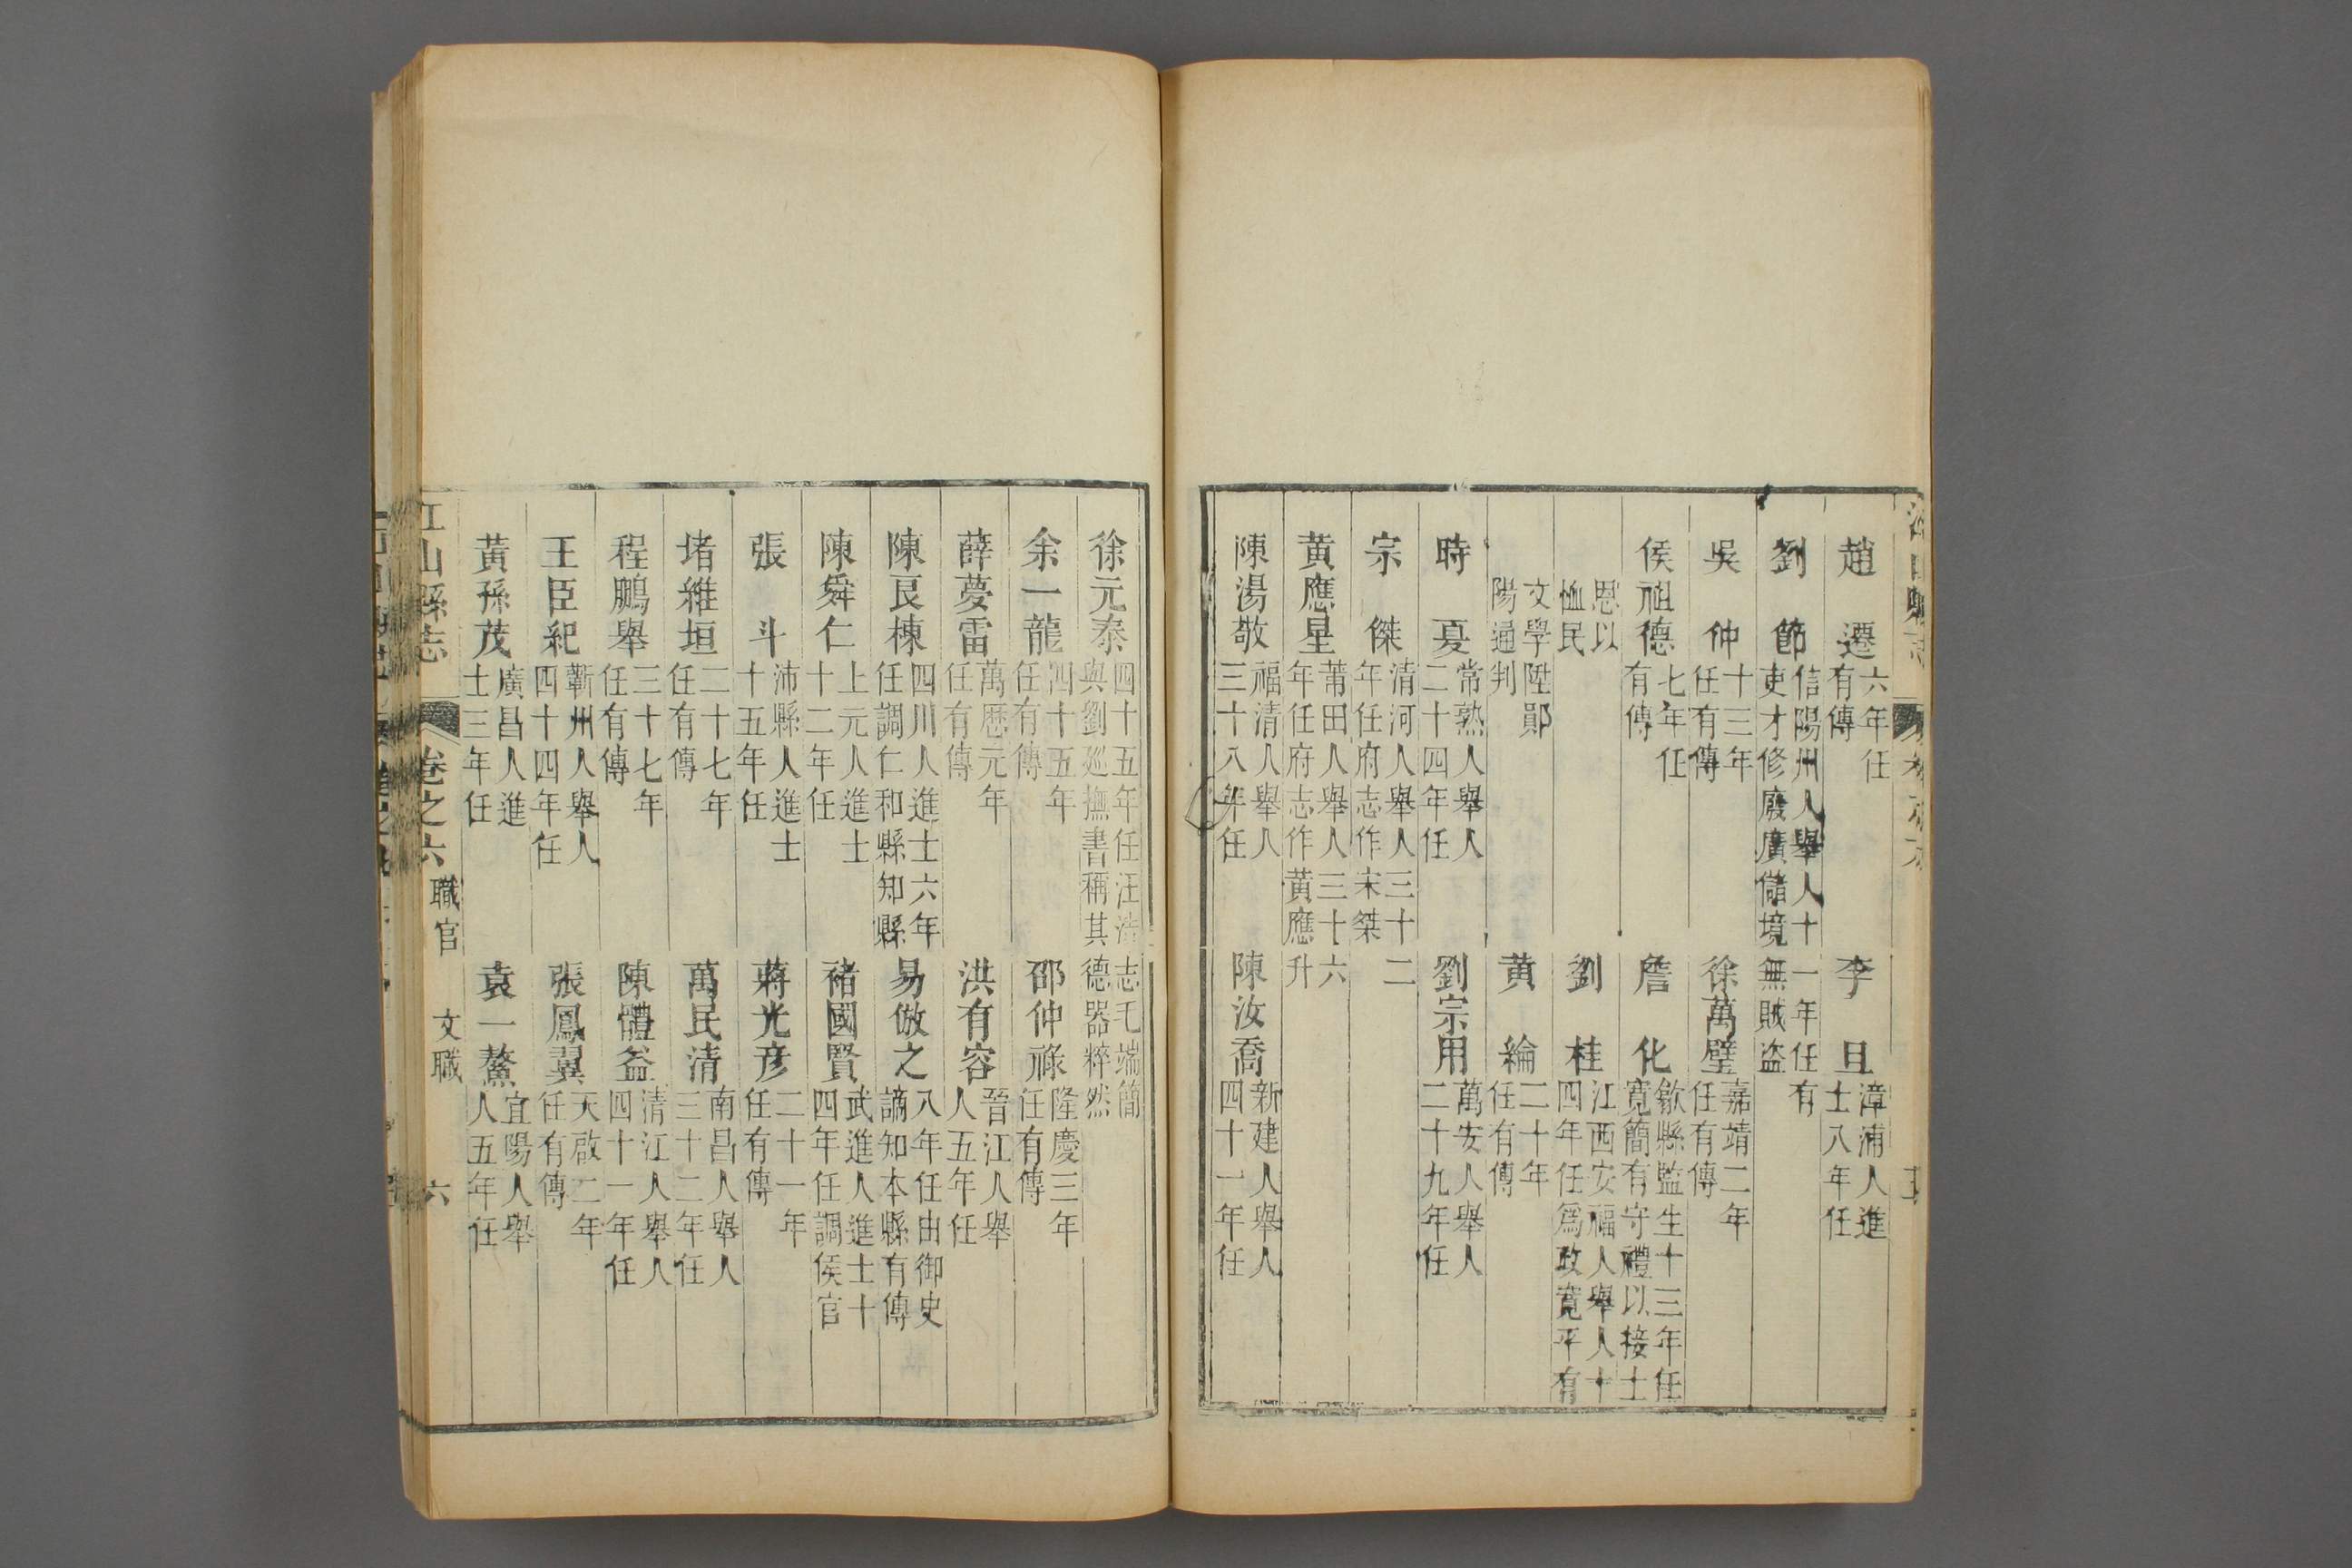 趙　遷 六年任 有傳　李　旦 漳浦人進 士八年任
劉　節 信陽州人舉人十一年任有 吏才修廢廣儲境無賊盜
吳　仲 十三年 任有傳　徐萬璧 嘉靖二年 任有傳
侯祖德 七年任 有傳　詹　化 歙縣監生十三年任 寬簡有守禮以接士
恩以 恤民　劉　桂 江西安福人舉人十 四年任爲政寬平有
文學陞鄖 陽通判　黃　綸 二十年 任有傳
時　夏 常熟人舉人 二十四年任　劉宗用 萬安人舉人 二十九年任
宗　傑 清河人舉人三十二 年任府志作宋桀
黃應星 莆田人舉人三十六 年任府志作黃應升
陳湯敬 福清人舉人 三十八年任　陳汝喬 新建人舉人 四十一年任
徐元泰 四十五年任汪浩志毛端簡 與劉廵撫書稱其德器粹然
余一龍 四十五年 任有傳　邵仲祿 隆慶三年 任有傳
薛夢雷 萬歷元年 任有傳　洪有容 晉江人舉 人五年任
陳良棟 四川人進士六年 任調仁和縣知縣　易倣之 八年任由御史 謫知本縣有傳
陳舜仁 上元人進士 十二年任　褚國賢 武進人進士十 四年任調侯官
張　斗 沛縣人進士 十五年任　蔣光彦 二十一年 任有傳
堵維垣 二十七年 任有傳　萬民清 南昌人舉人 三十二年任
程鵬舉 三十七年 任有傳　陳體益 清江人舉人 四十一年任
王臣紀 蘄州人舉人 四十四年任　張鳳翼 天啟二年 任有傳
黃孫茂 廣昌人進 士三年任　袁一鰲 宜陽人舉 人五年任
江山縣志　卷之六　職官　文職　六